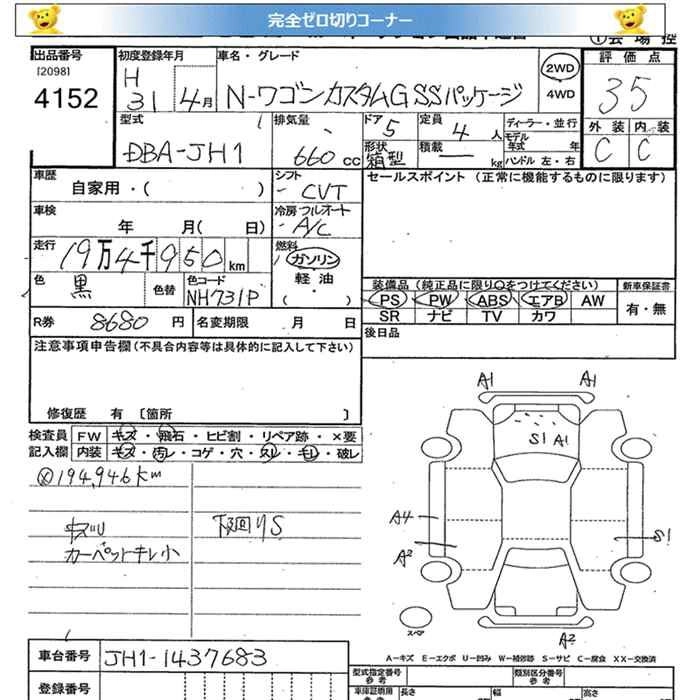 完全ゼロ切りコーナー
①会場控
出品番号
[2098]
4152
初度登録年月
H
31 4月
車名・グレード
N-ワゴンカスタムG SSパッケージ
2WD
4WD
評価点
35
外装 内装
C C
型式
DBA-JH1
排気量
660 cc
ドア 5
形状 箱型
定員 4 人
積載 — kg
ディーラー・並行
モデル年式 年
ハンドル 左・右
車歴
自家用・( )
シフト
- CVT
セールスポイント (正常に機能するものに限ります)
車検
年 月( 日)
冷房 フルオート
- A/C
走行
19万4千950 km
燃料
ガソリン
軽油
( ・ )
色
黒
色替
色コード
NH731P
装備品 (純正品に限り○をつけてください)
PS PW ABS エアB AW
SR ナビ TV カワ
新車保証書
有・無
R券 8680 円
名変期限 月 日
後日品
注意事項申告欄 (不具合内容等は具体的に記入して下さい)
修復歴 有 〔箇所 〕
検査員記入欄
FW キズ・飛石・ヒビ割・リペア跡・×要
内装 キズ・汚レ・コゲ・穴・スレ・キレ・破レ
194,946km
キズU
カーペットキレ小
下廻りS
A1 A1
S1 A1
A4
A2
S1
A2
スペア
A-キズ E-エクボ U-凹み W-補修跡 S-サビ C-腐食 XX-交換済
車台番号 JH1-1437683
登録番号
型式指定番号 参考
類別区分番号 参考
車庫証明用 参考
長さ 幅 高さ